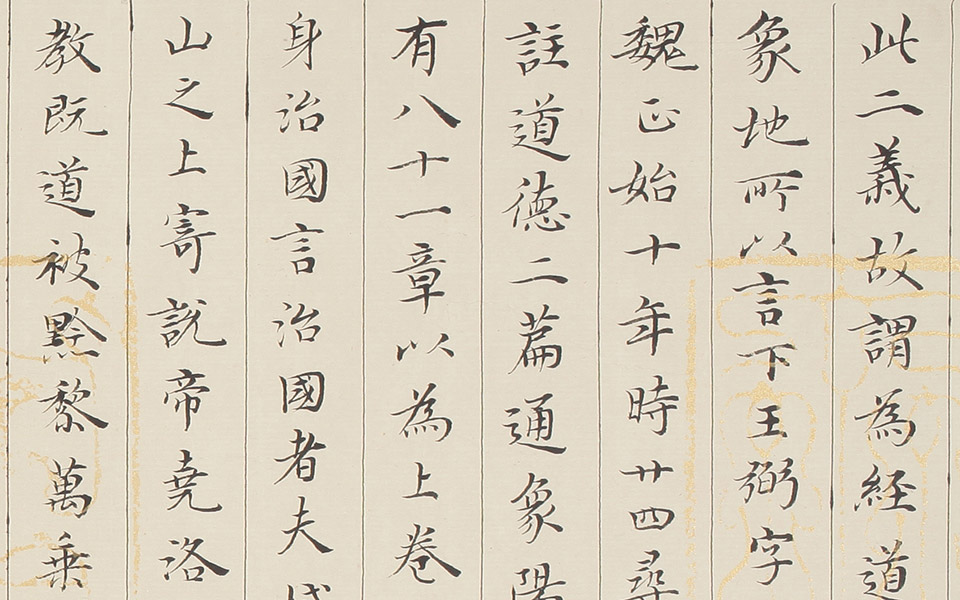 此二義故謂為経道
象地所以言下王弼字
魏正始十年時廿四尋
註道德二篇通象陽
有八十一章以為上卷
身治國言治國者夫
山之上寄說帝堯洛
教既道被黔黎萬乗